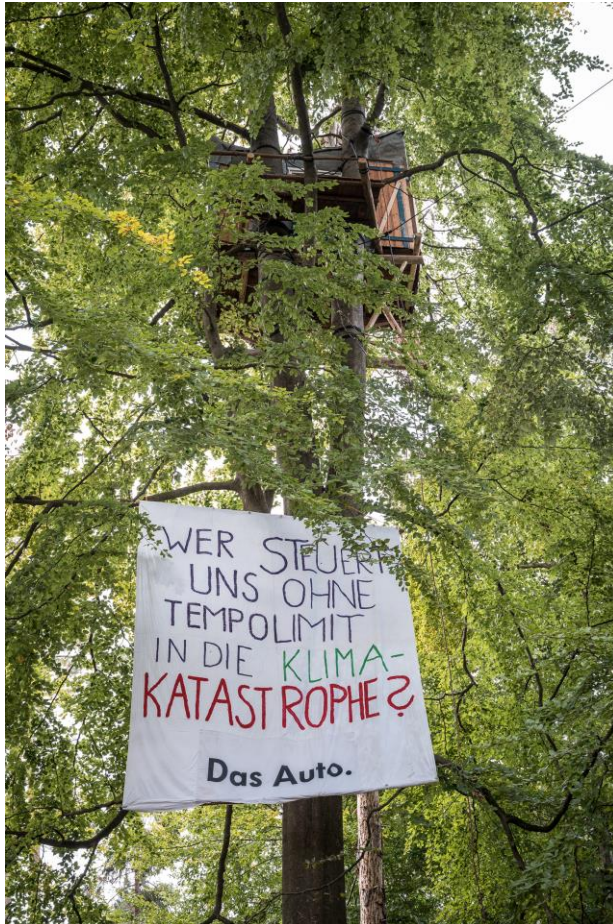 WER STEUERT
UNS OHNE
TEMPOLIMIT
IN DIE KLIMA-
KATASTROPHE?
Das Auto.